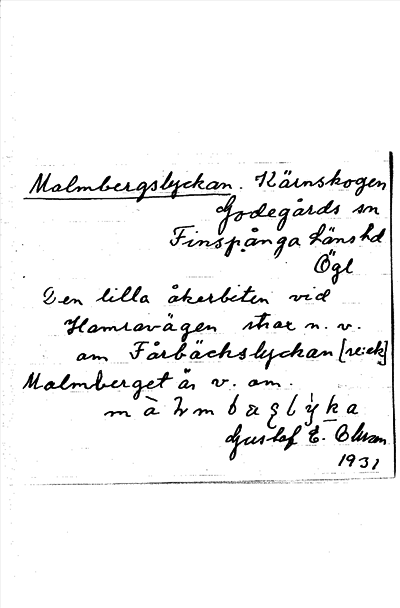 Malmbergslyckan. Kärnskogen
Godegårds sn
Finspånga länshd
Ögl
Den lilla åkerbiten vid
Hamravägen strax n. v.
om Fårbäckslyckan
Malmberget är v. om.
Gustaf E.
1931